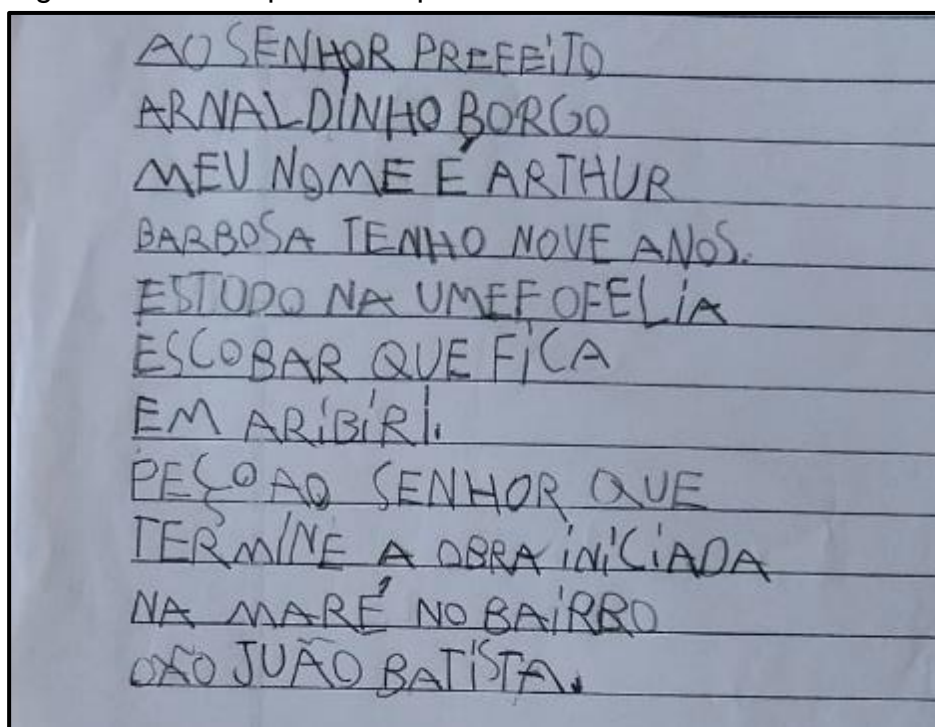 AO SENHOR PREFEITO
ARNALDINHO BORGO
MEU NOME É ARTHUR
BARBOSA TENHO NOVE ANOS.
ESTUDO NA UMEF OFELIA
ESCOBAR QUE FICA
EM ARIBIRI.
PEÇO AO SENHOR QUE
TERMINE A OBRA INICIADA
NA MARÉ NO BAIRRO
JUÃO BATISTA.